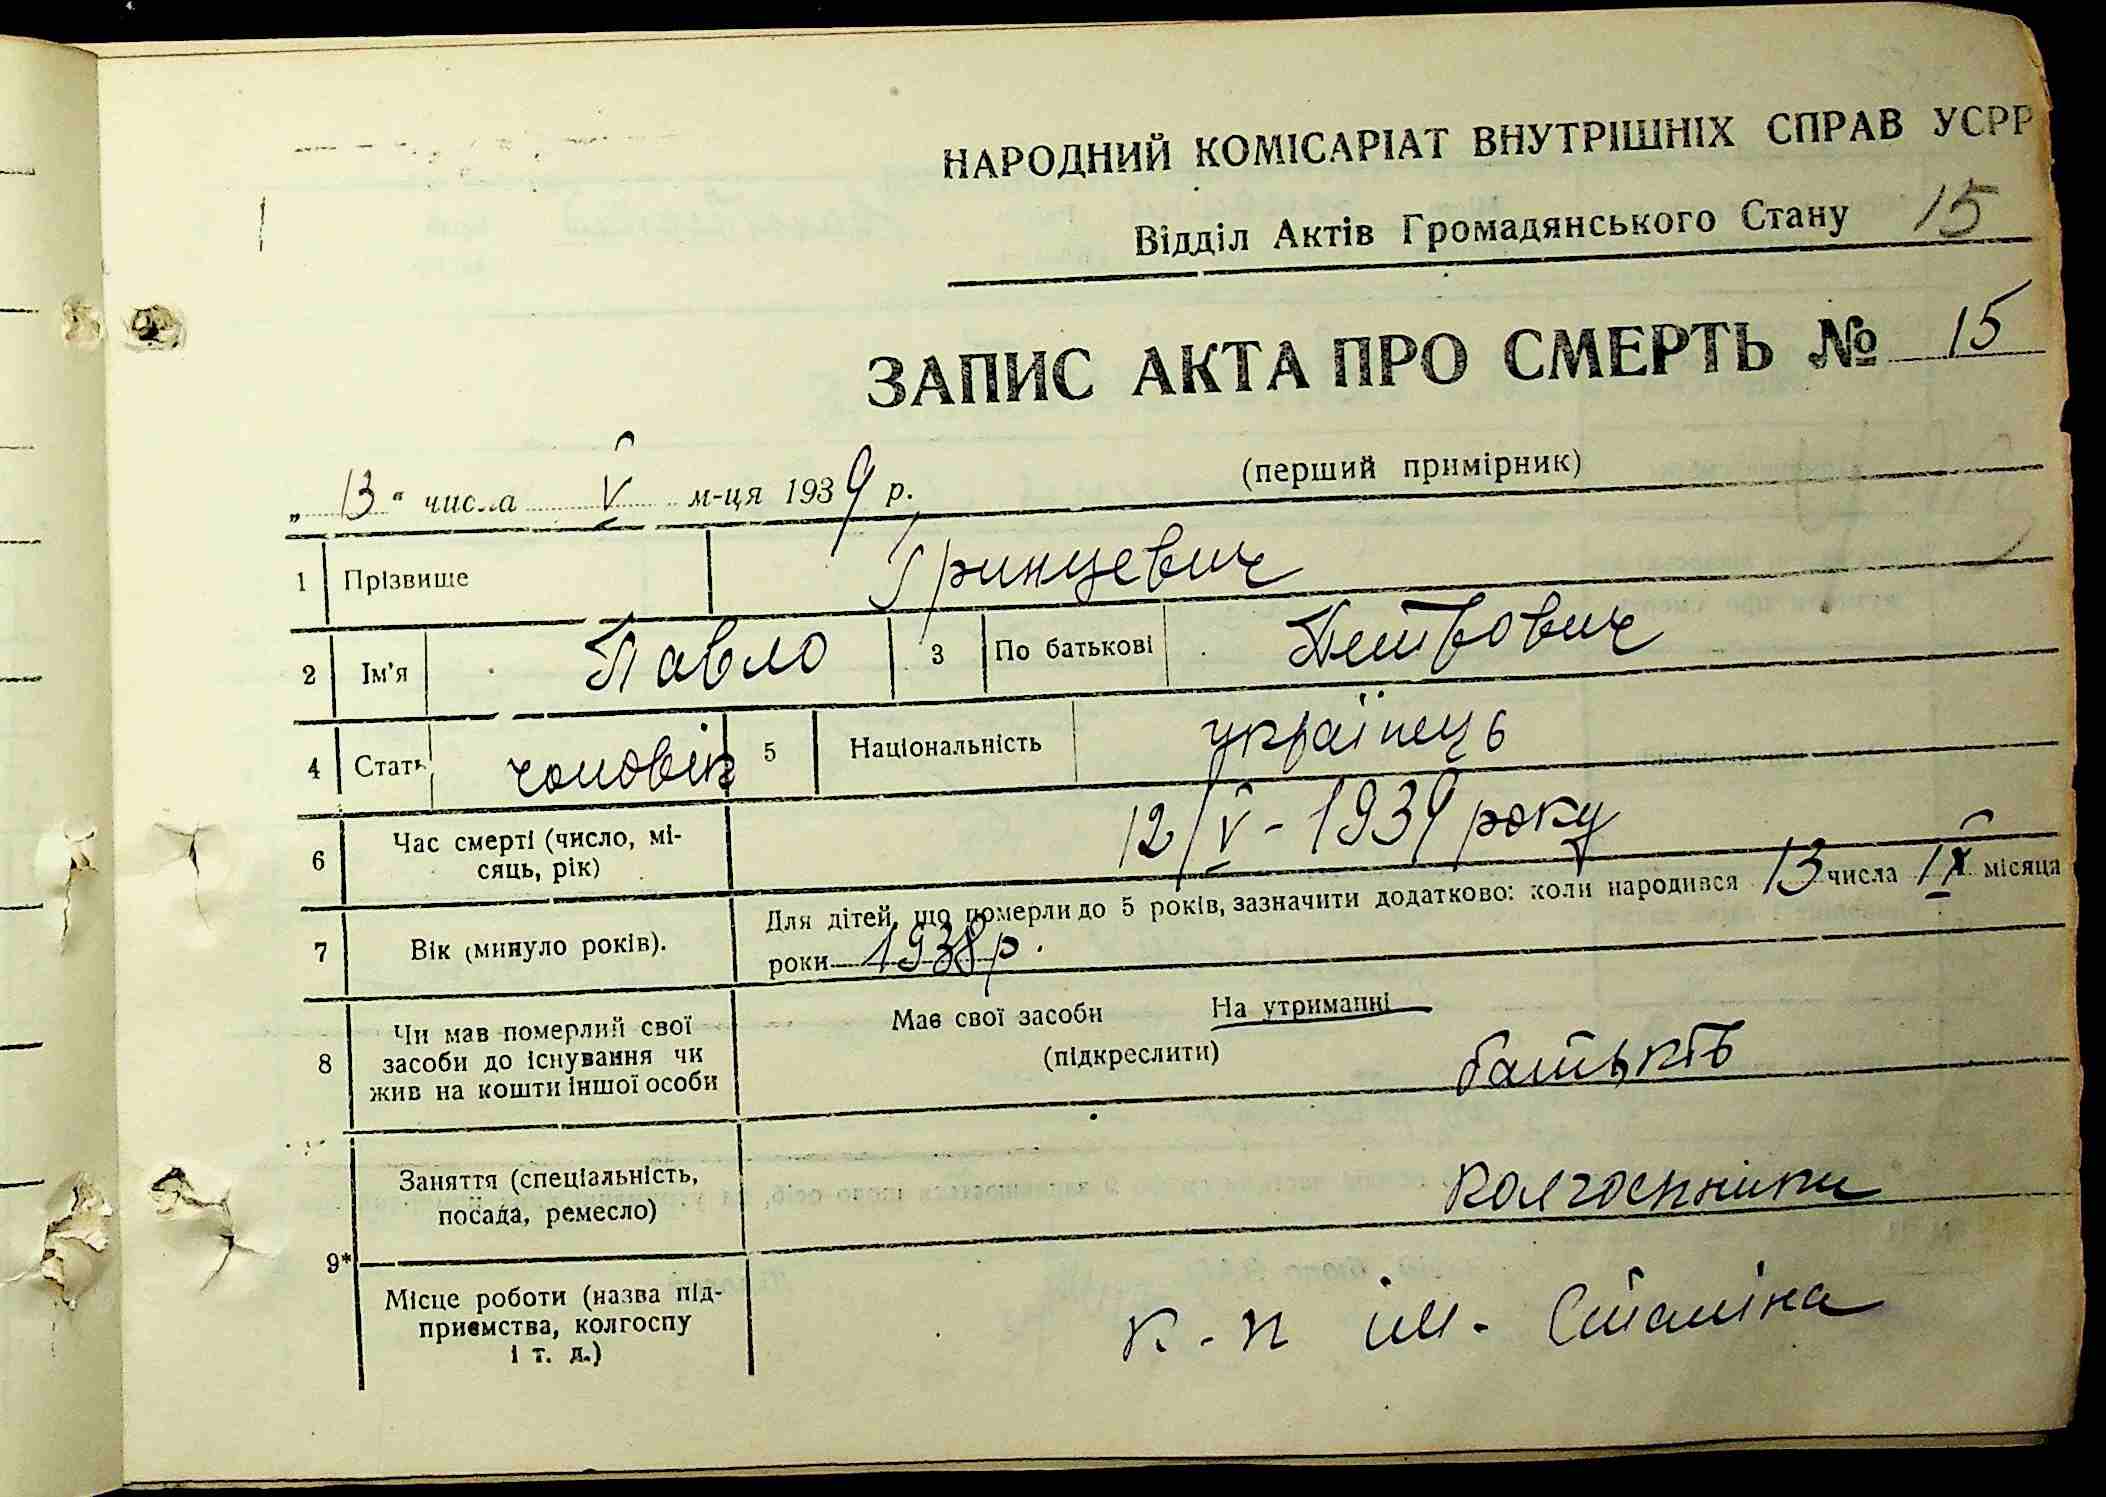 НАРОДНИЙ КОМІСАРІАТ ВНУТРІШНІХ СПРАВ УСРР
Відділ Актів Громадянського Стану 15
ЗАПИС АКТА ПРО СМЕРТЬ № 15
(перший примірник)
„ 13 “ числа V м-ця 1939 р.
1 Прізвище Гринцевич
2 Ім'я Павло 3 По батькові Петрович
4 Стать чоловік 5 Національність українець
6 Час смерті (число, мі-
сяць, рік) 12/V - 1939 року
7 Вік (минуло років). Для дітей, що померли до 5 років, зазначити додатково: коли народився 13 числа IX місяца
роки 1938 р.
8 Чи мав померлий свої
засоби до існування чи
жив на кошти іншої особи
Має свої засоби На утриманні
(підкреслити)
батьків
9*
Заняття (спеціальність,
посада, ремесло) колгоспники
Місце роботи (назва під-
приємства, колгоспу
і т. д.)
к-п ім. Сталіна